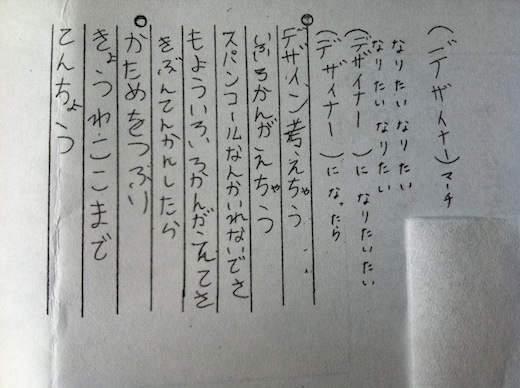 (デザイナー)マーチ
なりたい なりたい
なりたい なりたい
(デザイナー )に なりたいたい
(デザイナー )に なったら
デザイン考えちゃう
かんがえちゃう
スパンコールなんかいれないでさ
もよういろいろかんがえてさ
きぶんてんかんしたら
かためをつぶり
きょうわここまで
てんちょう